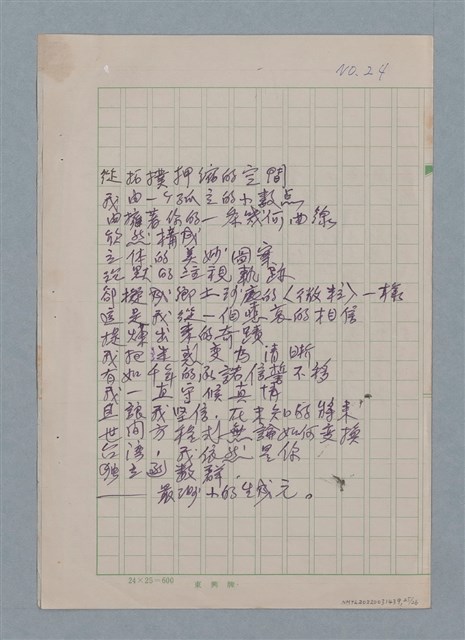 NO.24
從拓撲押縮的空間
我由一个孤立的小數点
由擁著你的一条幾何曲線
欣然構成
立体的美妙圖案
沈默的注視軌跡
卻擬成鄉土的〈微粒〉一樣
這是我從一個喋哀的相信
提煉出來的奇蹟
我把迷惑變為清晰
有如千年的承諾信誓不移
我一直守候真情
且讓我堅信,在未知的將來
世間方程式無論如何變換
台語,我依然是你
獨立函數群
——最渺小的生成元。
24×25=600